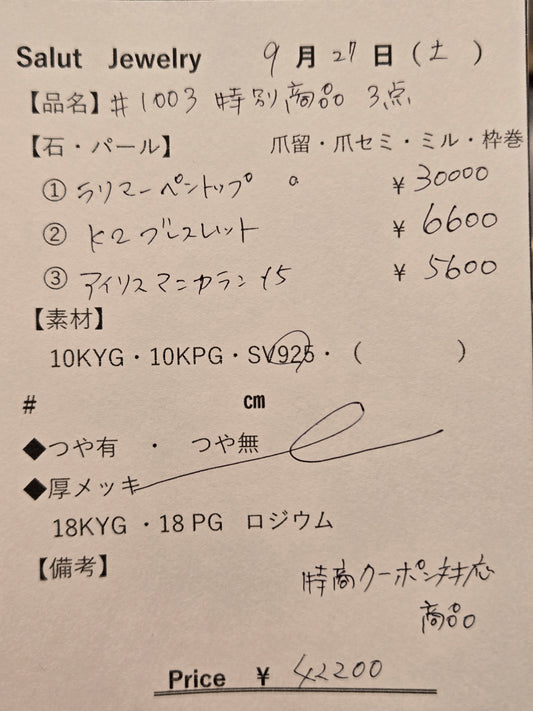 Salut Jewelry 9月27日(土 )
【品名】#1003 特別商品 3点
【石・パール】 爪留・爪セミ・ミル・枠巻
① ラリマーペントップ a ¥30000
② K2ブレスレット ¥6600
③ アイリスマニカラン15 ¥5600
【素材】
10KYG・10KPG・SV925・( )
# cm
◆つや有 ・ つや無
◆厚メッキ
18KYG ・18 PG ロジウム
【備考】
特商クーポン対応
商品
Price ¥ 42200